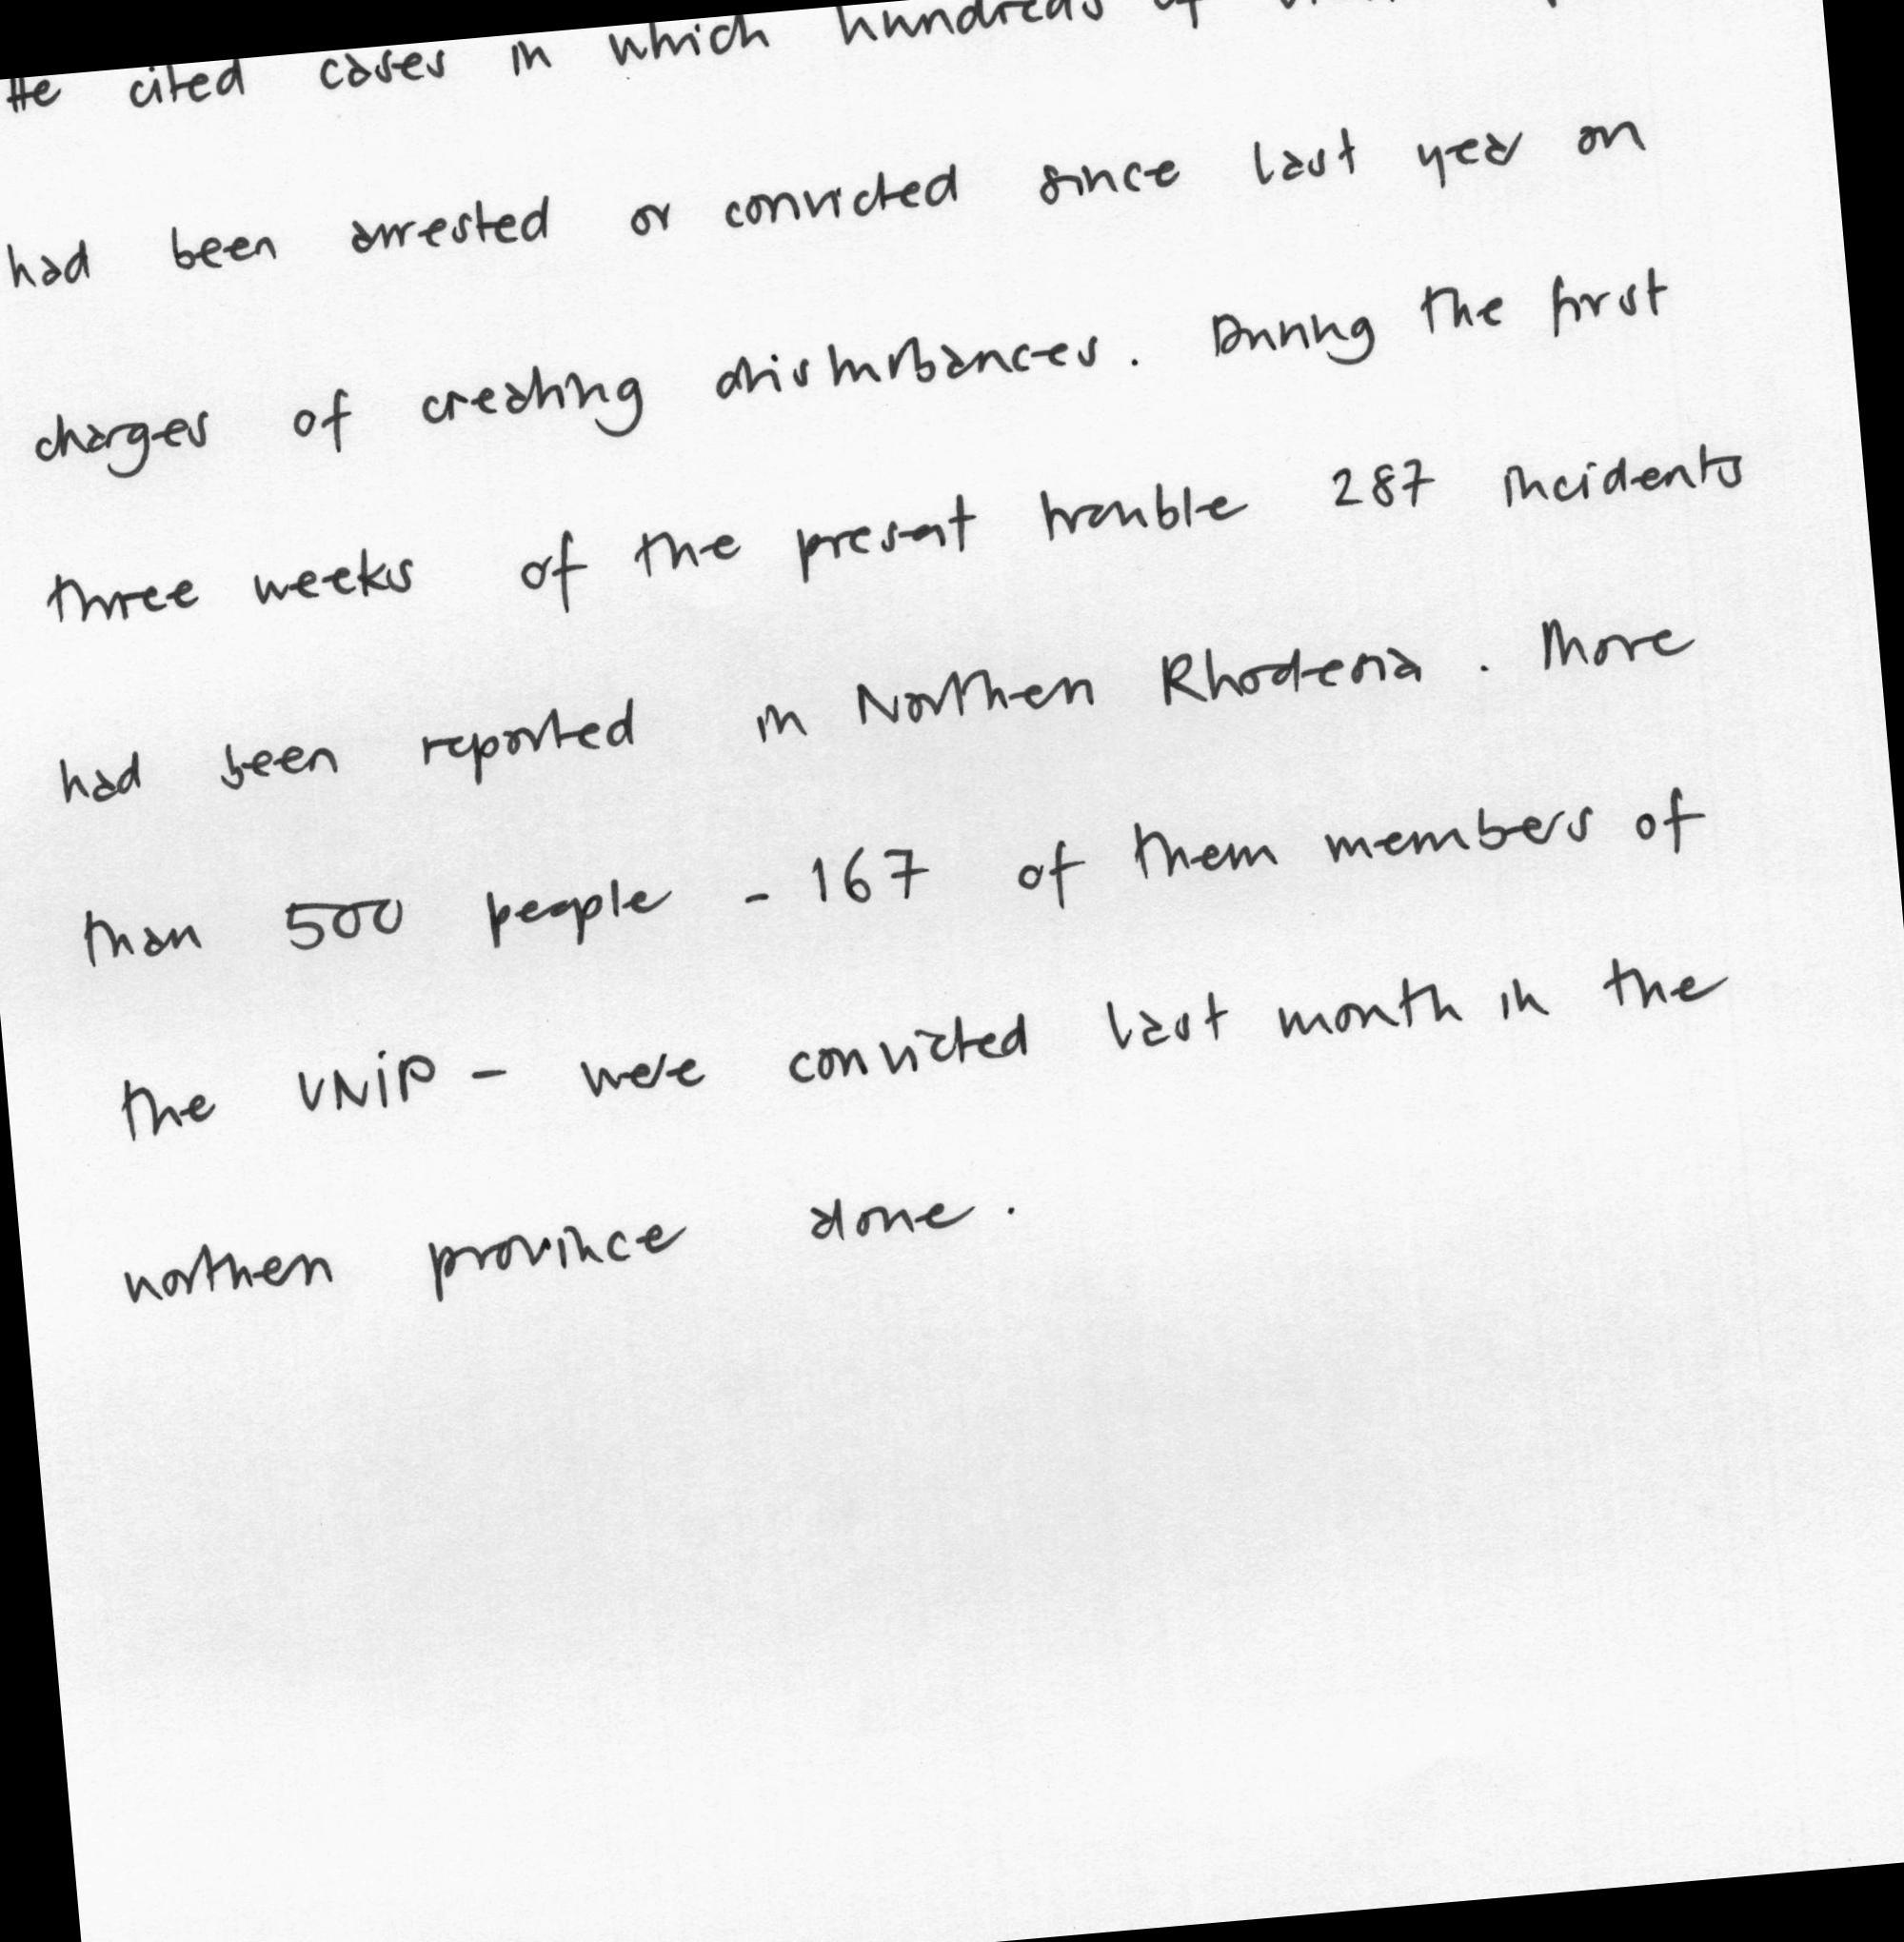 He cited cases in which hundreds of
had been arrested or convicted since last year on
charges of creating disturbances. During the first
three weeks of the present trouble 287 incidents
had been reported in Northen Rhodesia. More
than 500 people - 167 of them members of
the UNIP - were convicted last month in the
northen province alone.